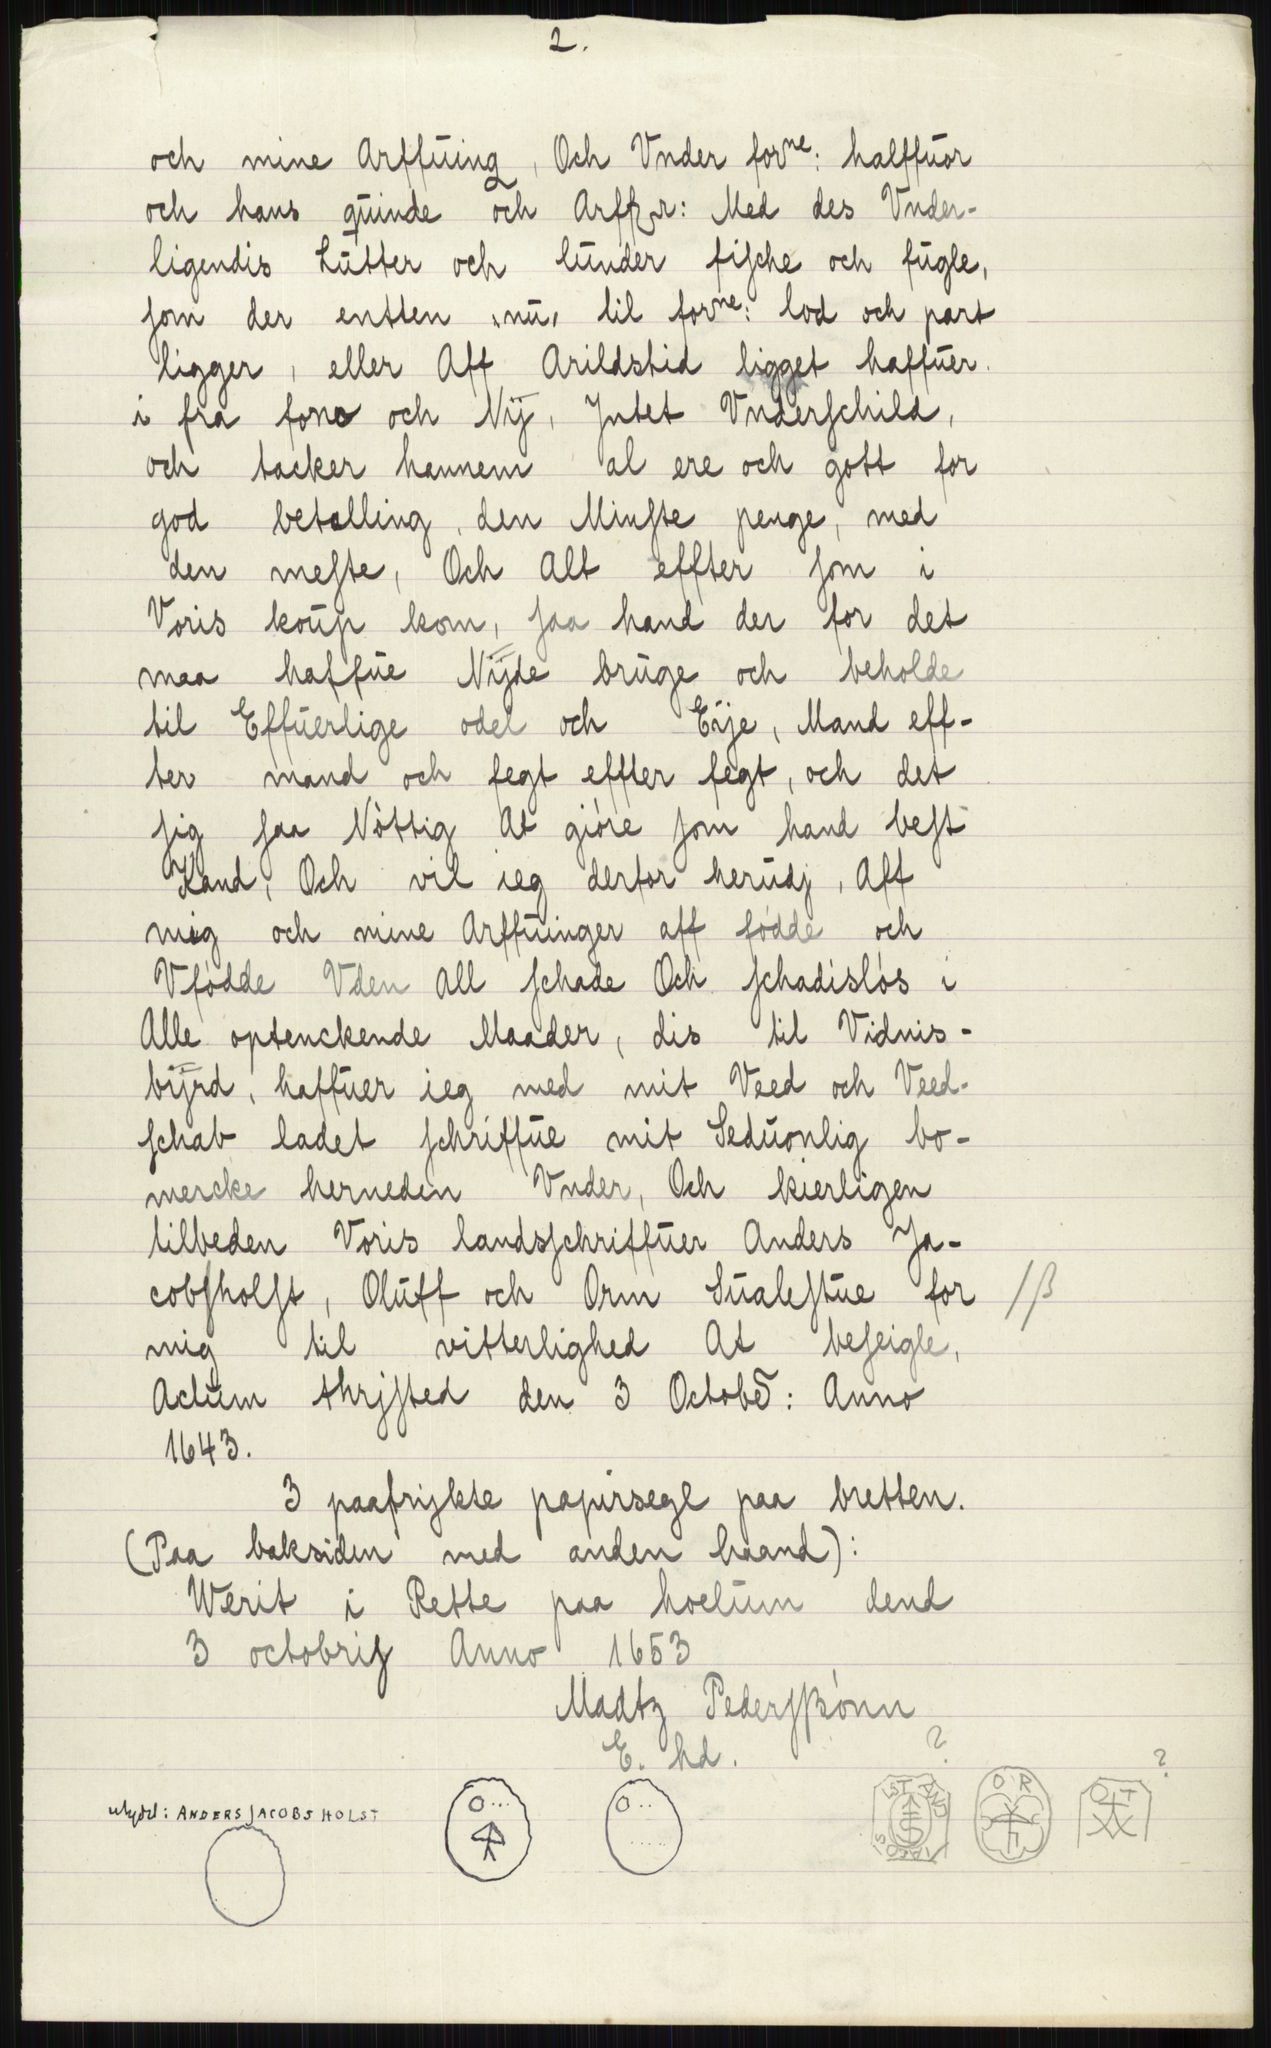 2.
och mine Arffüing, Och Vnder forne: halffüor
och hans qüinde och Arff r: Med des Vnder-
ligendis Lütter och lünder fische och fügle,
som der entten nü, til forne: lod och part
ligger, eller Aff Arildstid ligget haffüer.
i fra forne och Nÿ, Intet Vnderschild,
och tacker hannem al ere och gott for
god betalling, den Minste penge, med
den meste, Och Alt effter som i
Voris koüp kom, saa hand der for det
maa haffüe Nÿde brüge och beholde
til Effüerlige odel och Eÿe, Mand eff-
ter mand och segt effter segt, och det
sig saa Nòttig At gióre som hand best
Kand, Och vil ieg derfor herüdj, Aff
mig och mine Arffüinger aff fódde och
Vfódde Vden All schade Och schadislós i
Alle optenckende Maader, dis til Vidnis-
bÿrd, haffüer ieg med mit Veed och Veed-
schab ladet schriffüe mit Seduonlig bo-
mercke herneden Vnder, Och kierligen
tilbeden Voris landsschriffüer Anders Ja-
cobsholst, Olüff och Orm Süalestüe for /ß
mig til vitterlighed At beseigle,
Actüm thrjsted den 3 Octobr: Anno
1643.
3 paatrykte papirsegl paa bretten.
(Paa baksiden med anden haand):
Werit i Rette paa hoelüm dend
3 octobris Anno 1653
Madtz Pedersßónn
E. hd.
? ?
utydel: ANDERS JACOBS HOLST O... O.. O R O T